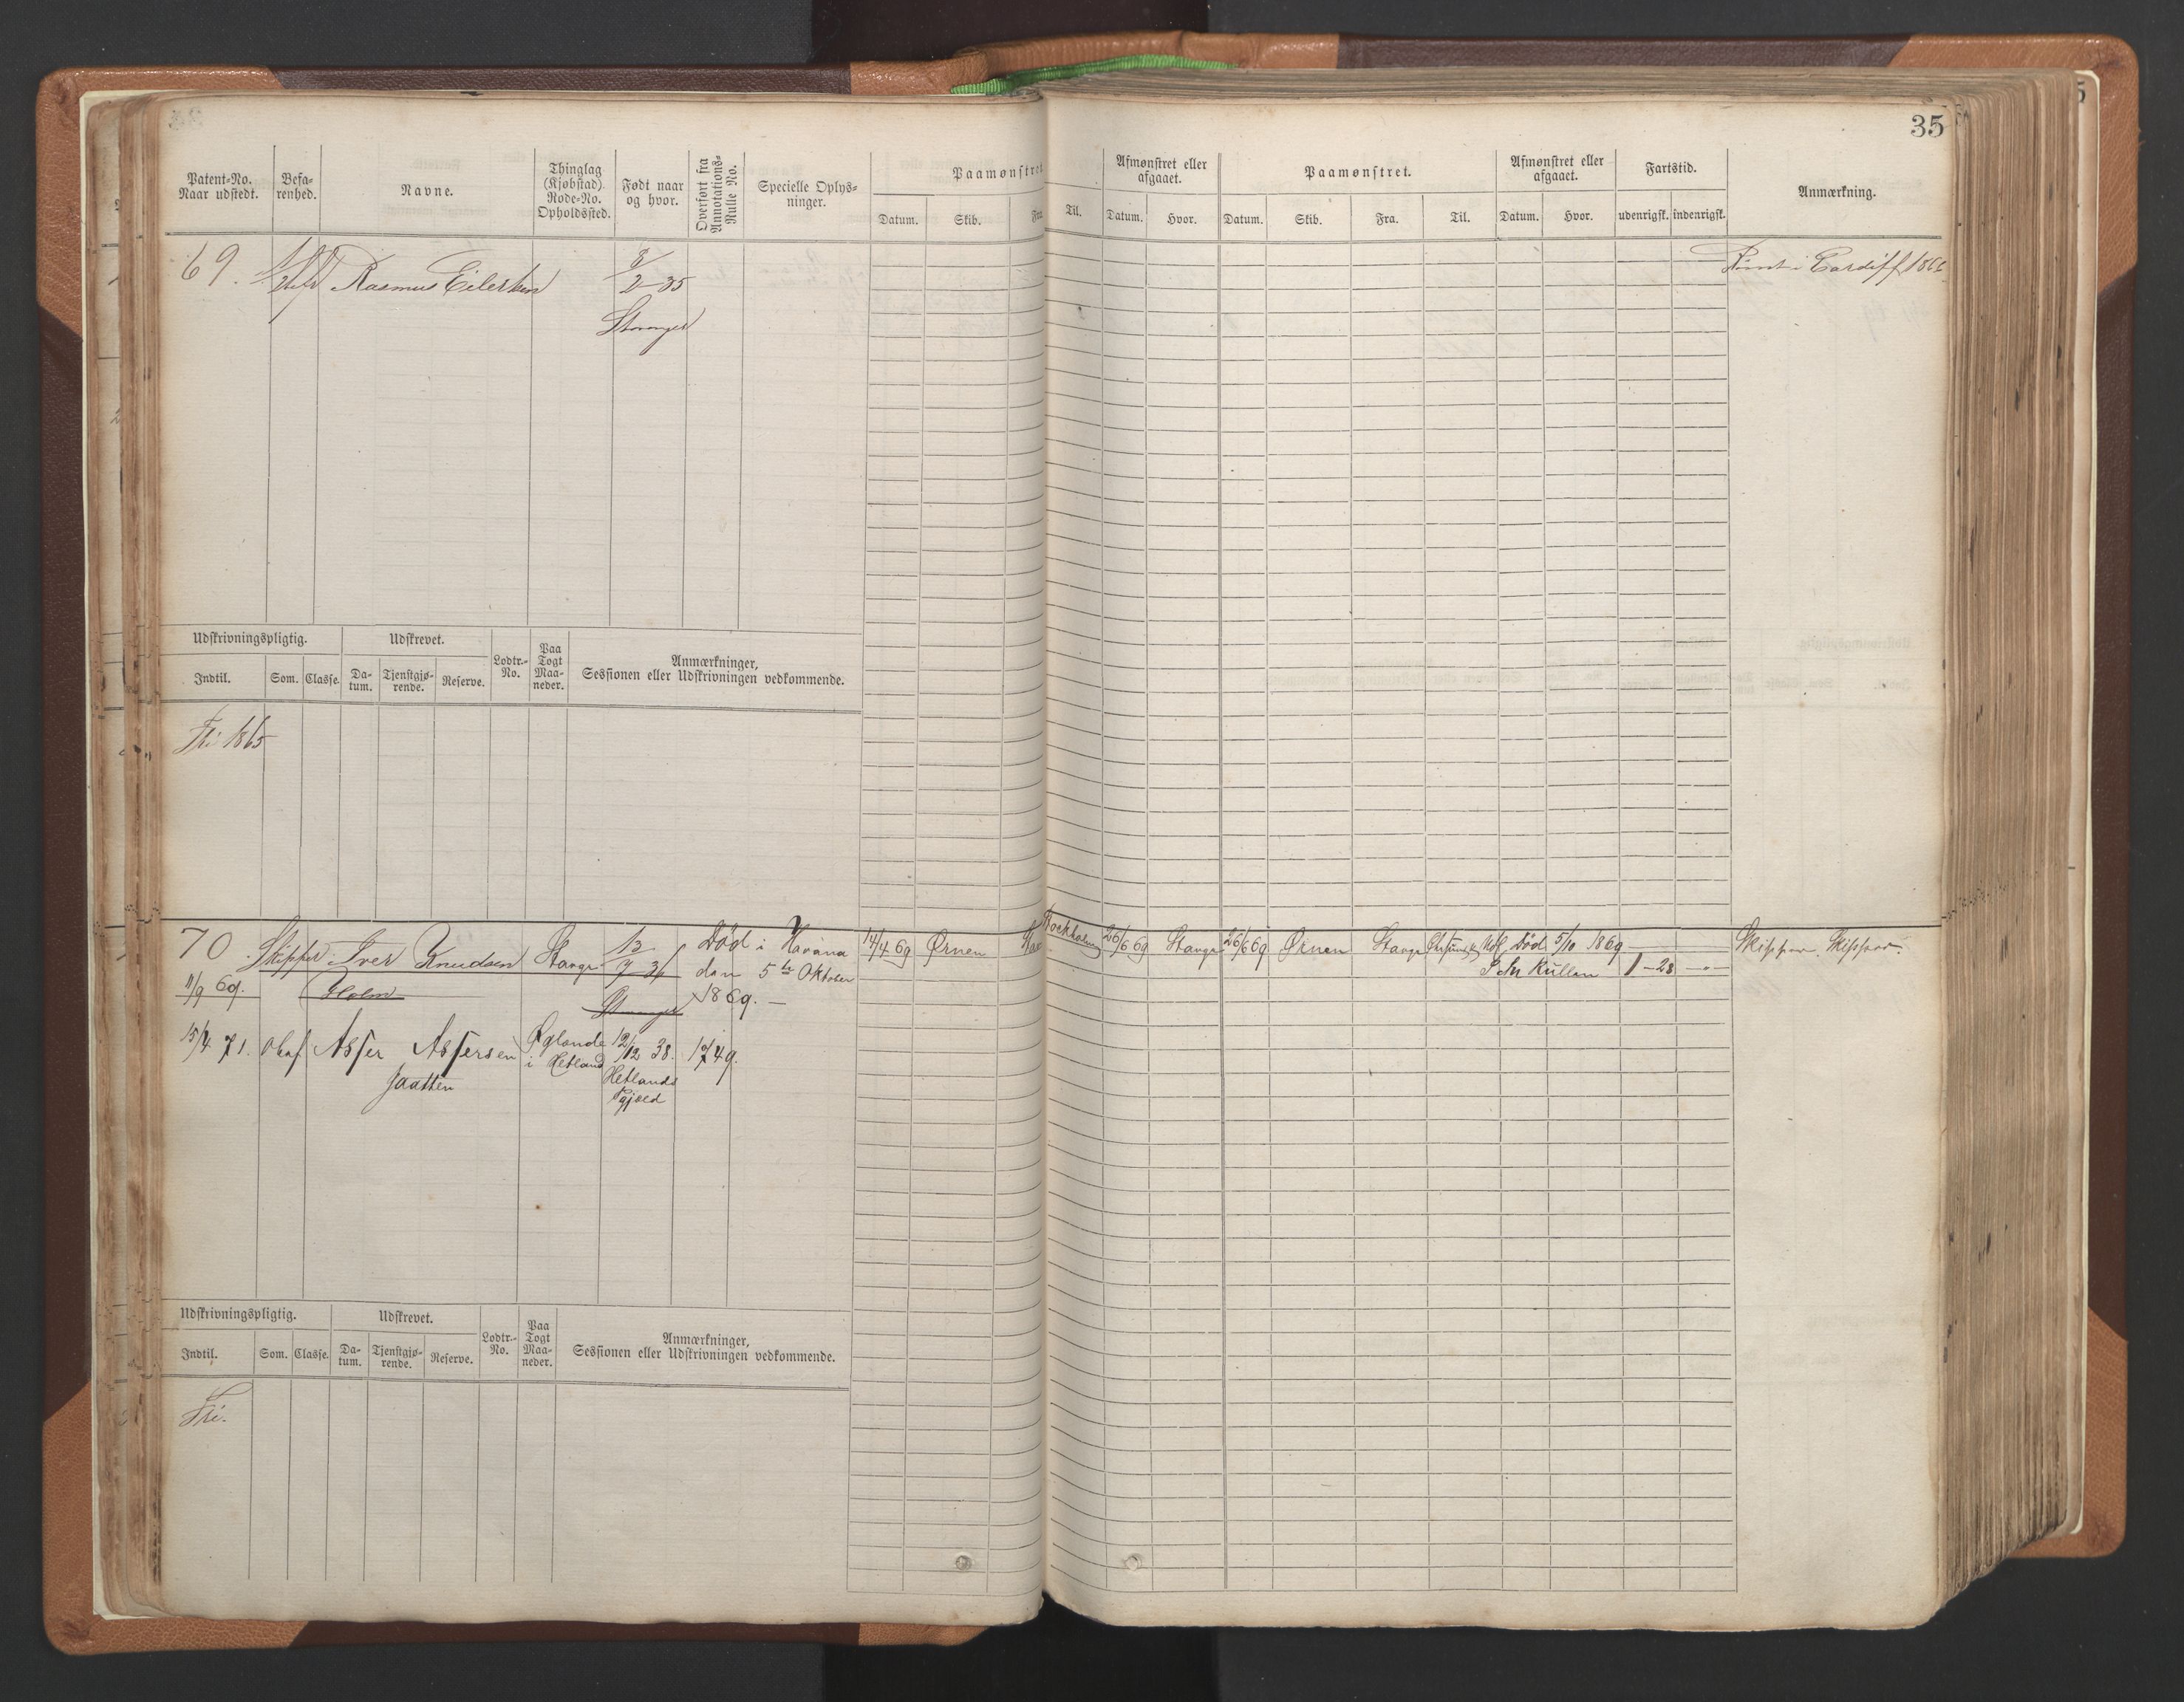 35
Patent-No. Naar udstedt.
Befa-renhed.
Navne.
Thinglag (Kjøbstad). Rode-No. Opholdssted.
Født naar og hvor.
Overført fra Annotations-Rulle No.
Specielle Oplys-ninger.
Paamønstret
Datum. Skib. Fra.
Til.
Afmønstret eller afgaaet.
Datum. Hvor.
Paamønstret.
Datum. Skib. Fra. Til.
Afmønstret eller afgaaet.
Datum. Hvor.
Fartstid.
udenrigsk. indenrigsk.
Anmærkning.
69. Rasmus Eilertsen 8/2 35
Stavanger
Rømt i Cardiff
Udskrivningspligtig. Udskrevet. Lodtr.-No. Paa Togt Maa-neder. Anmærkninger,
Sessionen eller Udskrivningen vedkommende.
Indtil. Som. Classe. Da-tum. Tjenstgjø-rende. Reserve.
Fri 1865
70. Skipper Iver Knudsen Stavgr 12/7 36 Død i Havana 14/4 69 Ørnen Stav Stockholm 26/6 69 Stavgr 26/6 69 Ørnen Stavgr Død 5/10 1869 Skipper. Skipper.
11/9 69. Holm Stavanger den 5te Oktober 1869. 1-28
15/4 71. Asser Assersen Øglænde i Hetland 12/12 38. 1749.
Jaatten Hetlands Pgjæld
Udskrivningspligtig. Udskrevet. Lodtr.-No. Paa Togt Maa-neder. Anmærkninger,
Sessionen eller Udskrivningen vedkommende.
Indtil. Som. Classe. Da-tum. Tjenstgjø-rende. Reserve.
Fri.